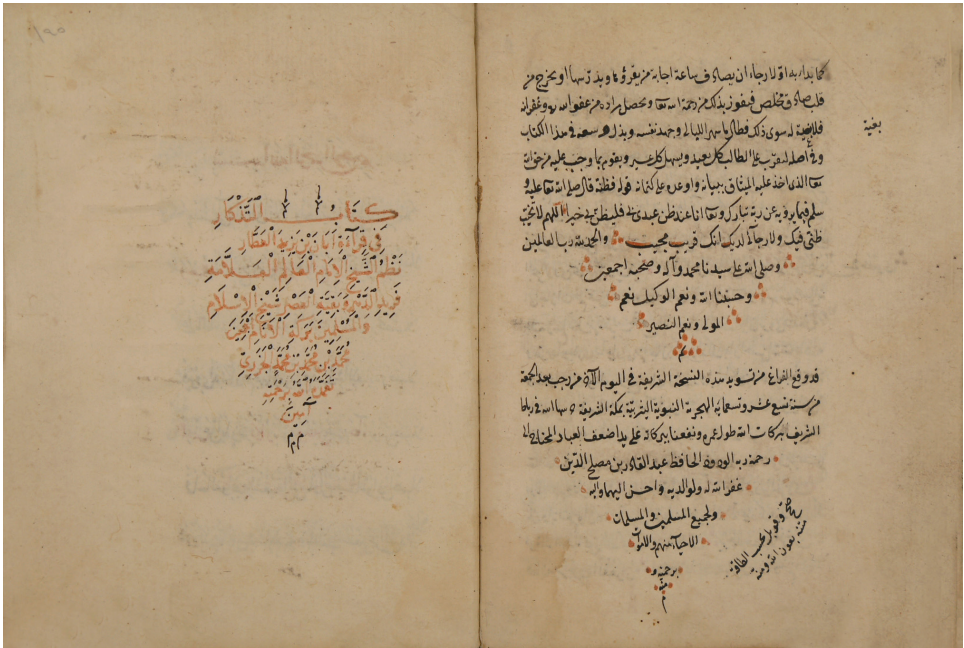 كما بدا به اولا رجاء ان يصادف ساعة اجابة من يقرؤها ويدرسها او يخرج من
قلب صادق مخلص فيفوز بذلك من رحمة الله تعا ويحصل مراده من عفو الله وغفرانه
فلا بغية له سوى ذلك فطال ما سهر الليالي وجهد نفسه وبذل وسعه في هذا الكتاب
بغية
وفي اصله ليقرب على الطالب كل بعيد ويسهل كل عسير ويقوم بما وجب عليه من حق الله
تعا الذى اخذ عليه الميثاق ببيانه واوعده على كتمانه قوله فظنه قال صلى الله تعا عليه و
سلم فيما يرويه عن ربه تبارك وتعا انا عند ظن عبدى بى فليظن بى خيرا اللهم لا تخيب
ظنى فيك ولا رجائى لديك انك قريب مجيب والحمد لله رب العالمين
وصلى الله على سيدنا محمد وآله وصحبه اجمعين
وحسبنا الله ونعم الوكيل نعم
المولى ونعم النصير
م
قد وقع الفراغ من تسويد هذه النسخة الشريفة فى اليوم من رجب بعد الجمعة
من سنة تسع عشر وتسعمائة الهجرية النبوية بمكة الشريفة الله فى رباط
الشريف بركات الله طول عمره ونفعنا ببركاته على يد اضعف العباد المحتاج الى
رحمة ربه الودود الحافظ عبد القادر بن مصلح الدين
غفر الله له ولوالديه واحسن اليهما واليه
ولجميع المسلمين والمسلمات
الاحياء منهم والاموات
برحمته و
منه
م
صح وقوبل بحسب الطاقة
بعون الله ومنه
كتاب التذكار
في قراءة ابان بن يزيد العطار
نظم الشيخ الامام العالم العلامة
فريد الدهر وبقية العصر شيخ الاسلام
والمسلمين بركة الانام اجمعين
محمد بن محمد بن محمد الجزري
تغمده الله برحمته
آمين
م م م